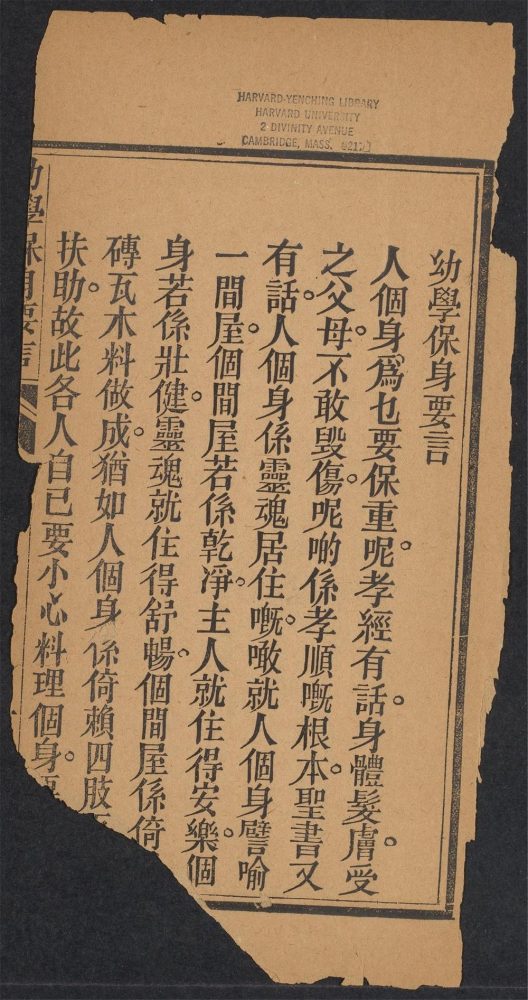 HARVARD-YENCHING LIBRARY
HARVARD UNIVERSITY
2 DIVINITY AVENUE
CAMBRIDGE, MASS. 02138
幼學保身要言
人個身爲乜要保重呢。孝經有話。身體髮膚。受
之父母。不敢毀傷。呢啲係孝順嘅根本。聖書又
有話。人個身係靈魂居住嘅。噉就人個身譬喻
一間屋。個間屋若係乾淨。主人就住得安樂。個
身若係壯健。靈魂就住得舒暢。個間屋係倚
磚瓦木料做成。猶如人個身係倚賴四肢
扶助。故此各人自己要小心料理個身。
幼學保身要言